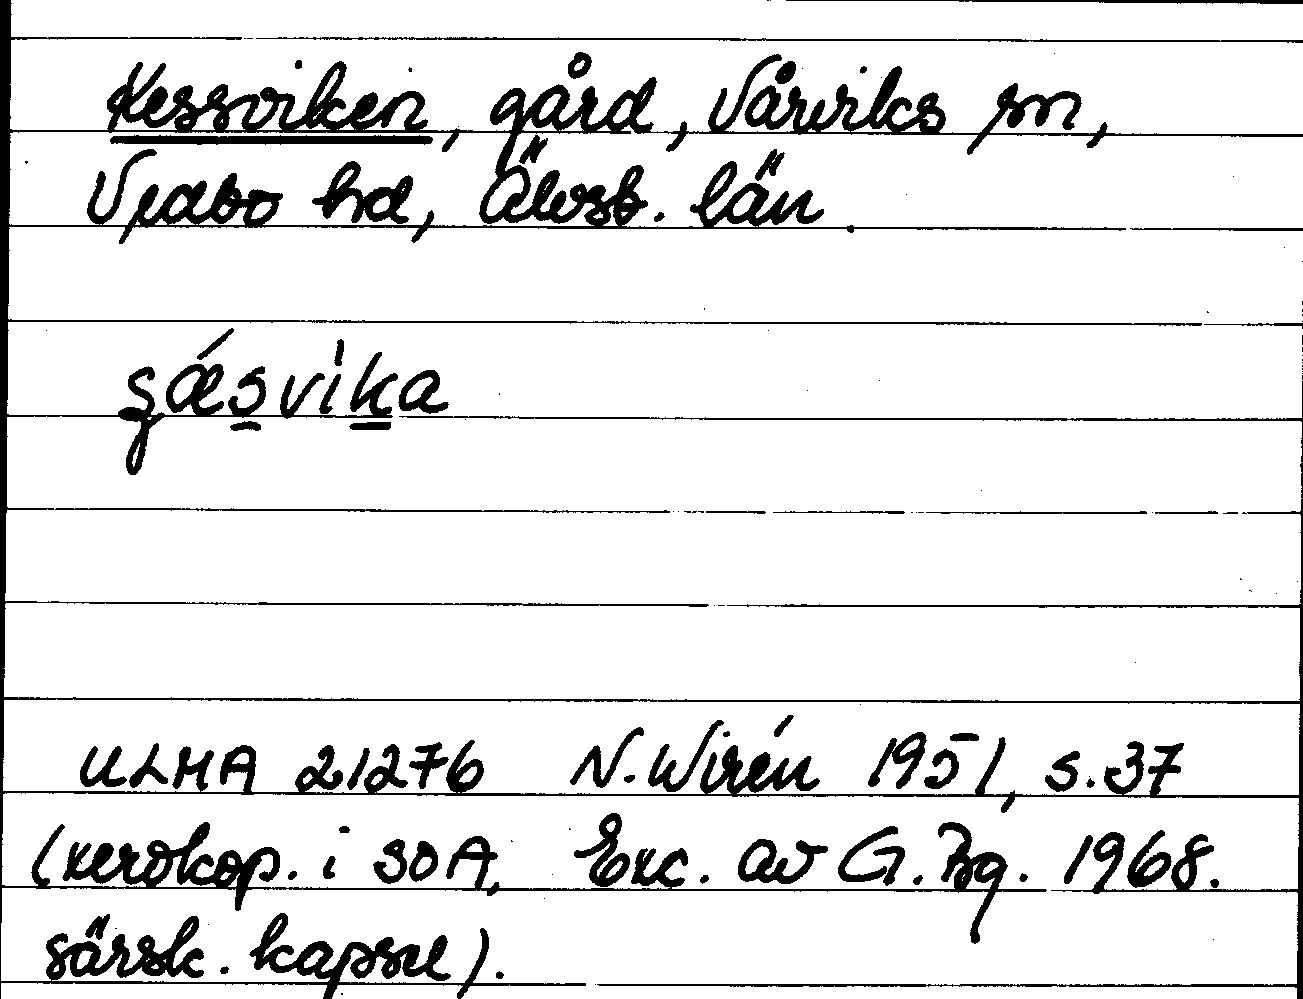 Kessviken, gård, Vårviks sn,
Vedbo hd, Älvsb. län.
gǽsvika
ULMA 21276 N. Wirén 1951, s. 37
(xerokop. i SOA, Exc. av G. Bg. 1968.
särsk. kapsel).